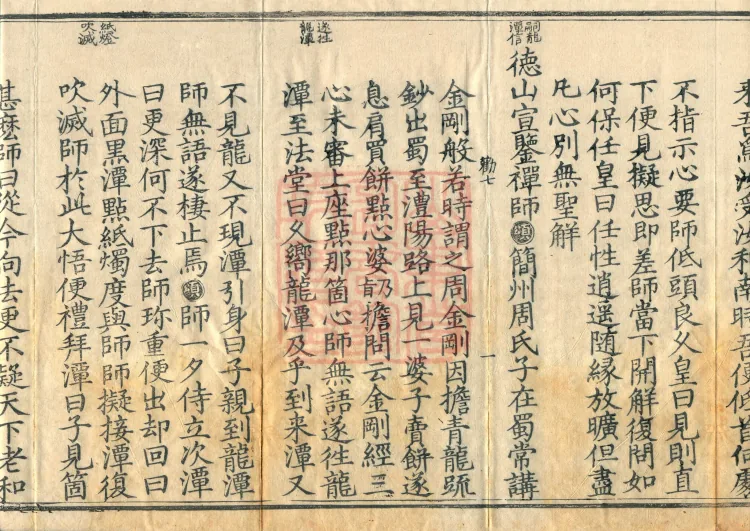 來吾為汝受汝和南時吾便低首何處
不指示心要師低頭良久皇曰見則直
下便見擬思即差師當下開解復問如
何保任皇曰任性逍遥随緣放曠但盡
凡心別無聖解
嗣龍潭信
德山宣鑒禪師 頌 簡州周氏子在蜀常講
勸七 一
金剛般若時謂之周金剛因擔青龍䟽
鈔出蜀至澧陽路上見一婆子賣餅遂
息肩買餅點心婆指擔問云金剛經三
心未審上座點那箇心師無語遂徃龍
遂徃龍潭
潭至法堂曰久嚮龍潭及乎到来潭又
不見龍又不現潭引身曰子親到龍潭
師無語遂棲止焉 頌 師一夕侍立次潭
曰更深何不下去師珎重便出却回曰
外面黒潭點紙燭度與師師擬接潭復
紙燈吹滅
吹滅師於此大悟便禮拜潭曰子見箇
甚麽師曰從今向去更不疑天下老和